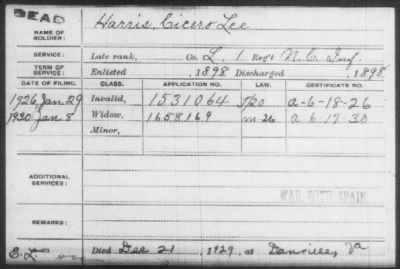 DEAD
NAME OF SOLDIER: Harris, Cicero Lee
SERVICE: Late rank, Co. L. 1 Reg't N.C. Inf.
TERM OF SERVICE: Enlisted , 1898 Discharged , 1898
DATE OF FILING. CLASS. APPLICATION NO. LAW. CERTIFICATE NO.
1926, Jan 29 Invalid, 1531064 a-6-18-26
1930, Jan 8 Widow, 1658169 m-26 a 6-17-30
Minor,
ADDITIONAL SERVICES:
WAR WITH SPAIN
REMARKS:
Died Dec 21, 1929, at Danville, Va